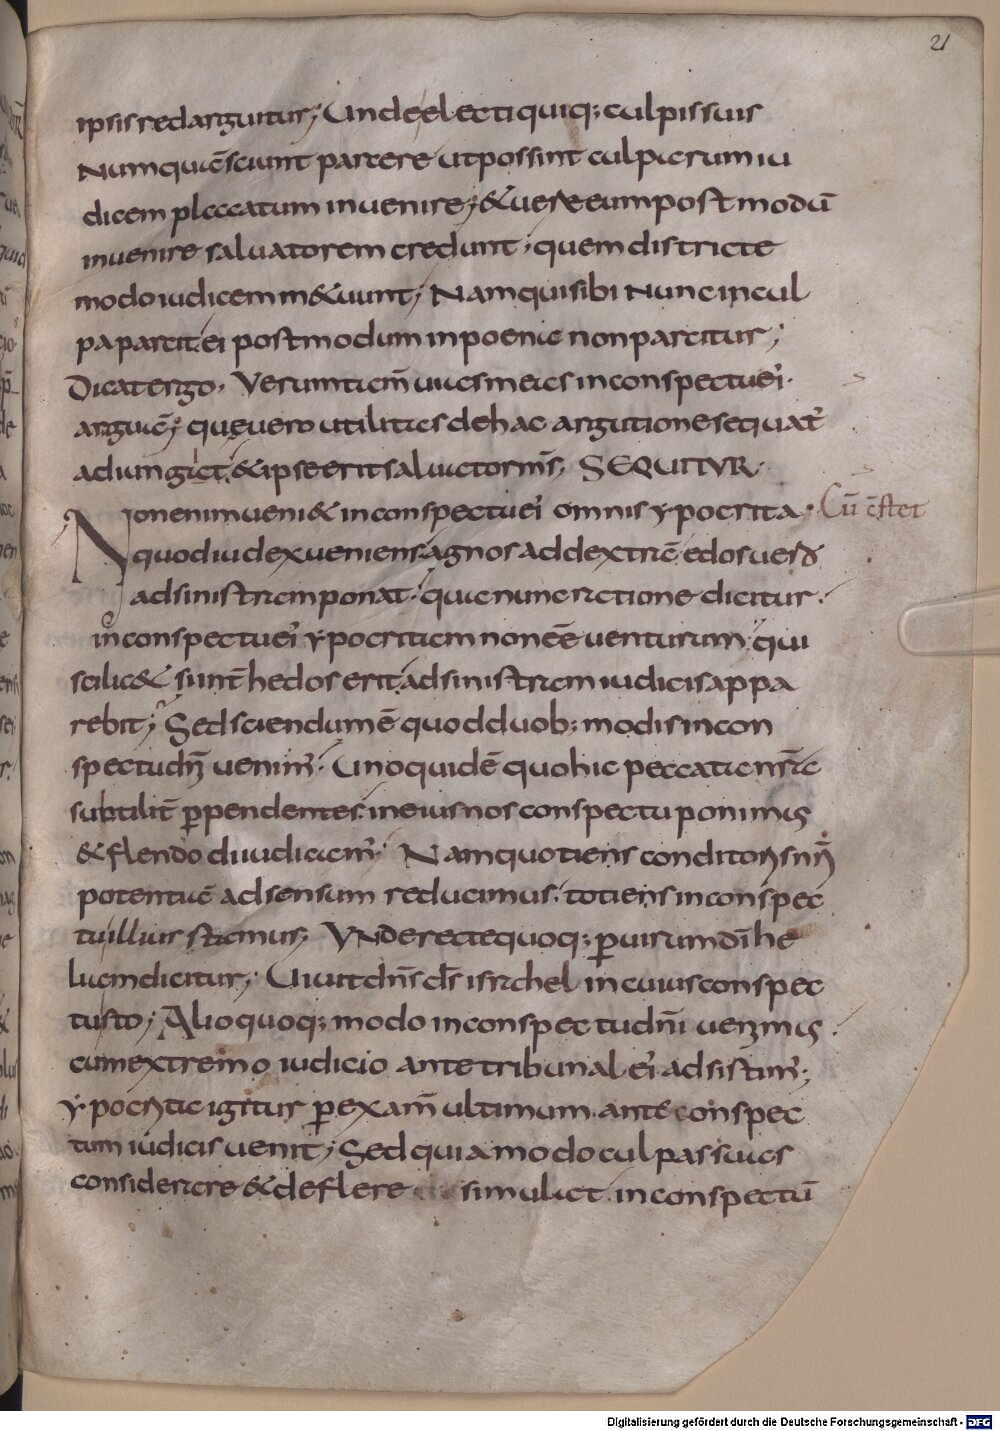 21
ipsis redarguitur; Unde electi quiq; culpis suis
Numquā sciunt parcere ut possint culparum iu
dicem placatum invenire; & vere eum post modū
invenire salvatorem credunt, quem districte
modo iudicem m&uunt; Nam qui sibi Nunc incul
pa parcit ei postmodum in poena non parcitur;
Dicat ergo. Verumtam̄ vias meas in conspectu ei'.
arguā; quę vero utilitas de hac argutione sequat'
adiungat & ipse erit salvator m̄s; SEQUITUR.
Non enim veni& in conspectu ei' omnis ypocrita. Cū c̄stet
quod iudex veniens agnos ad dextrā edos vero
ad sinistram ponat. qua nunc ratione dicitur.
in conspectu ei' ypocritam non eē venturum qui
scilic& sunt hedos erit ad sinistram iudicis appa
rebit; Sed sciendum ē quod duob; modis in con
spectu dn̄i venim'. Uno quidē quo hic peccata nr̄a
subtilit̄ p̱pendentes. in eius nos conspectu ponimus
& flendo diiudicam'; Nam quotiens conditoris nr̄i
potentiā ad sensum reducimus. totiens in conspec
tu illius stamus; UNDe recte quoq; p̱ virum dī he
liam dicitur; Vivit dn̄s ds̄ israhel in cuius conspec
tu sto; Alio quoq; modo in conspectu dn̄i venimus
cum extremo iudicio ante tribunal ei' adsistim';
ypocrita igitur p̱ exam̄ ultimum. ante conspec
tum iudicis venit; Sed quia modo culpas suas
considerare & deflere simulat. in conspectū
Digitalisierung gefördert durch die Deutsche Forschungsgemeinschaft - DFG